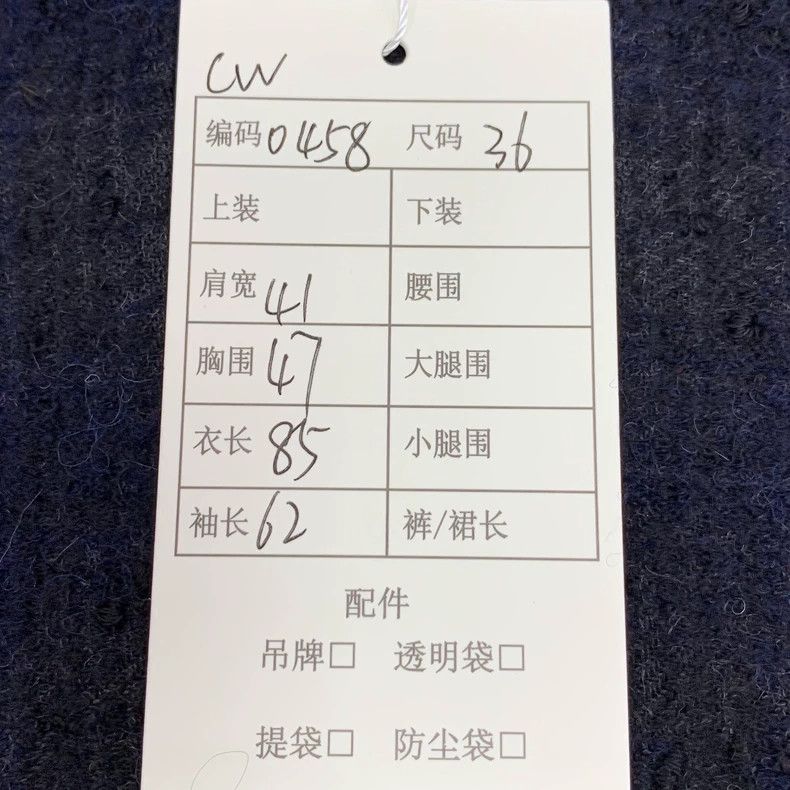 CW
编码 0458 尺码 36
上装 下装
肩宽 41 腰围
胸围 47 大腿围
衣长 85 小腿围
袖长 62 裤/裙长
配件
吊牌□ 透明袋□
提袋□ 防尘袋□